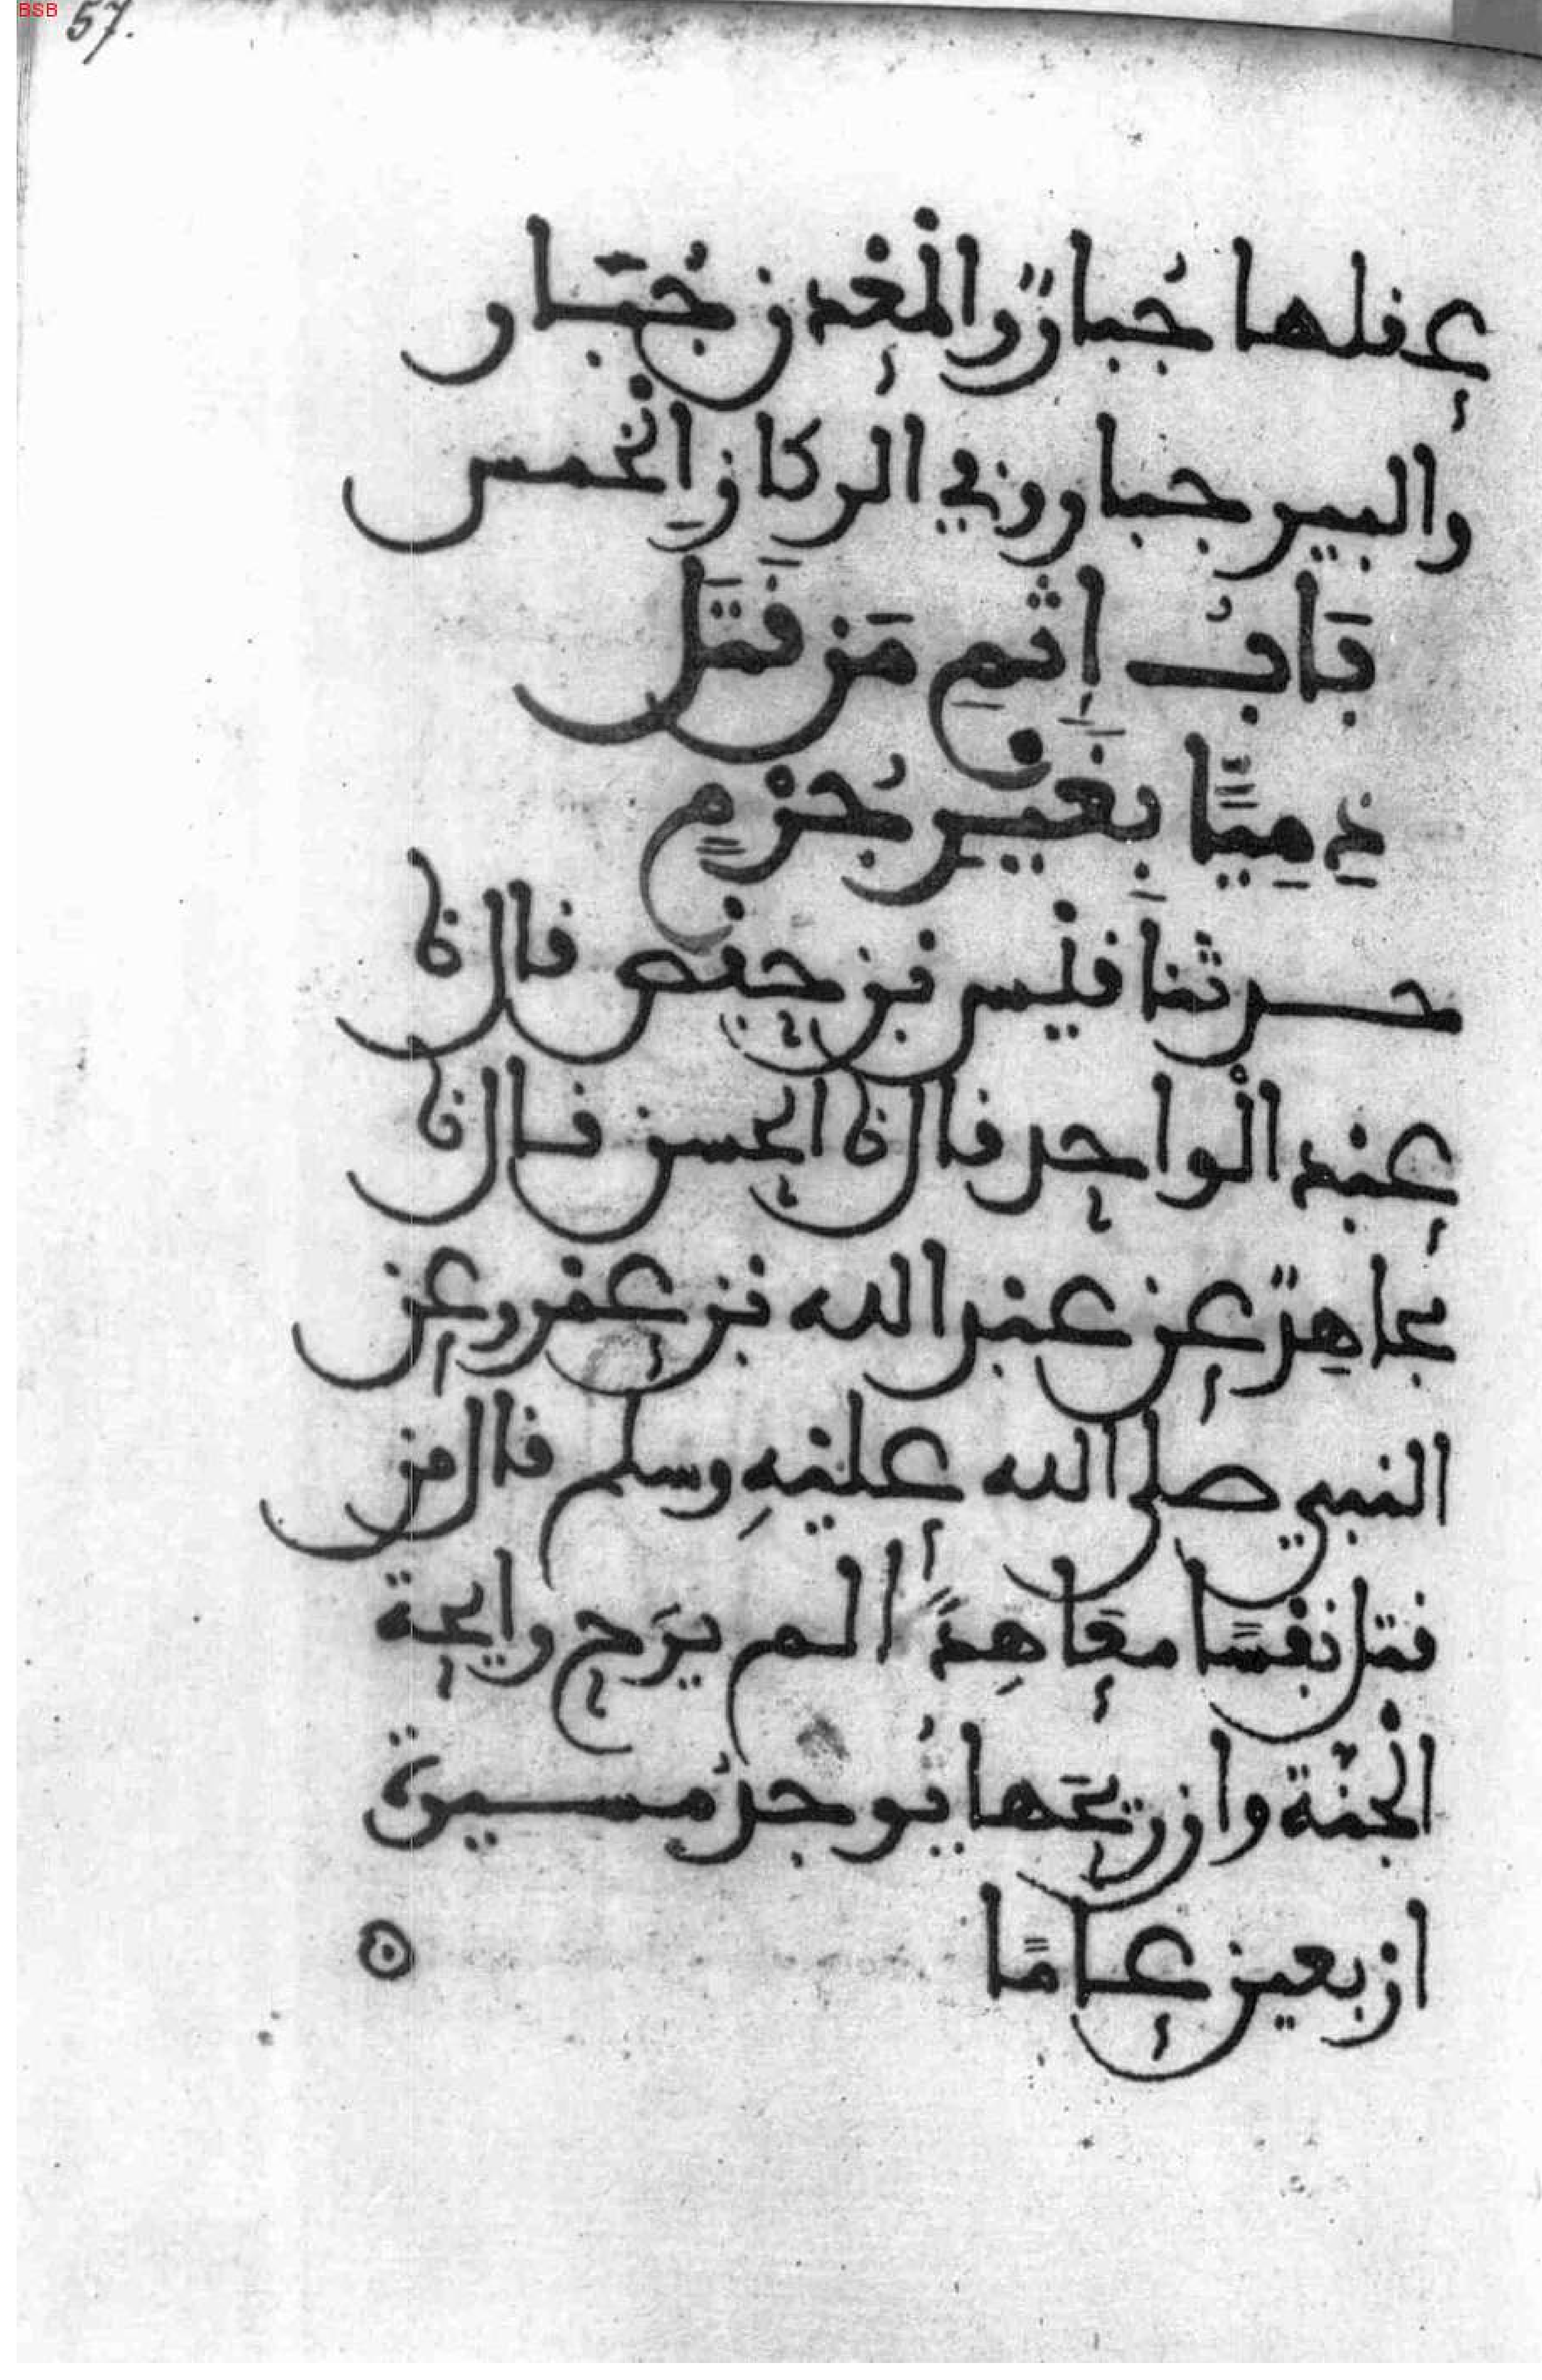 BSB 57.
عقلها جُبارٌ والْمعْدن جُبَار
والبير جبار وفي الركازِ اَلْخمس
بَابُ إِثمِ مَن قَتَلَ
ذِمِيًّا بِغَيْرِ جُرْمٍ
حدثنا قَيْس بن حفْص قال نا
عبْد الْواحد قال نا الحسن قال نا
مجاهِدٌ عن عبْد الله بْن عمْرو عن
النبي صلى الله عليْهِ وسلم قال من
قتل نفْسًا معَاهِدًا لم يَرَح رايحة
الْجنّة وان ريحَها يُوجدُ مسيرة
اربعين عامًا